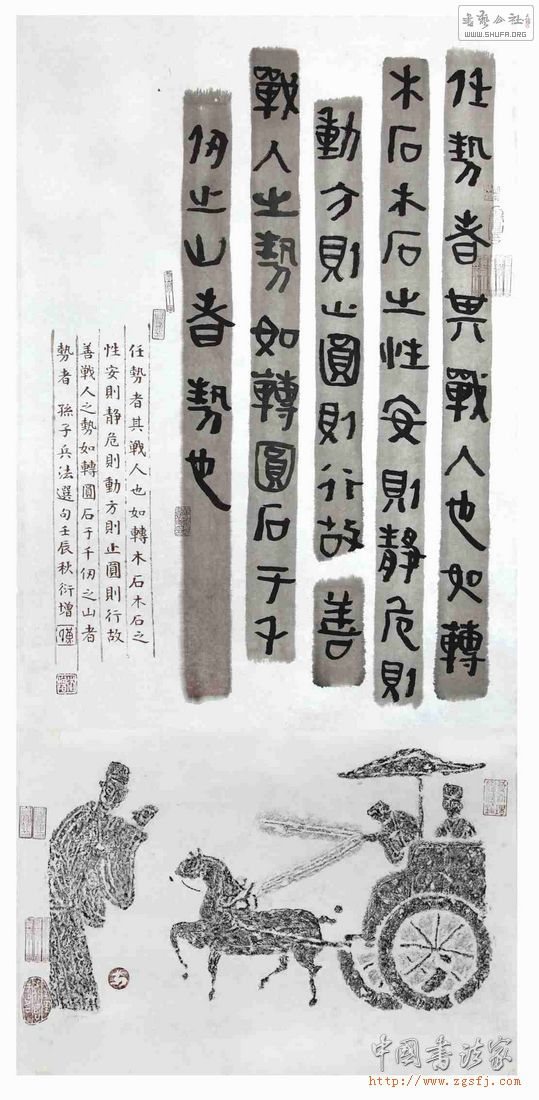 書藝公社
WWW.SHUFA.ORG
任勢者其戰人也如轉
木石木石之性安則靜危則
動方則止圓則行故善
戰人之勢如轉圓石于千
仞之山者勢也
任勢者其戰人也如轉木石木石之
性安則静危則動方則止圓則行故
善戰人之勢如轉圓石于千仞之山者
勢者 孫子兵法選句壬辰秋衍增
中國書法家
http://www.zgsfj.com